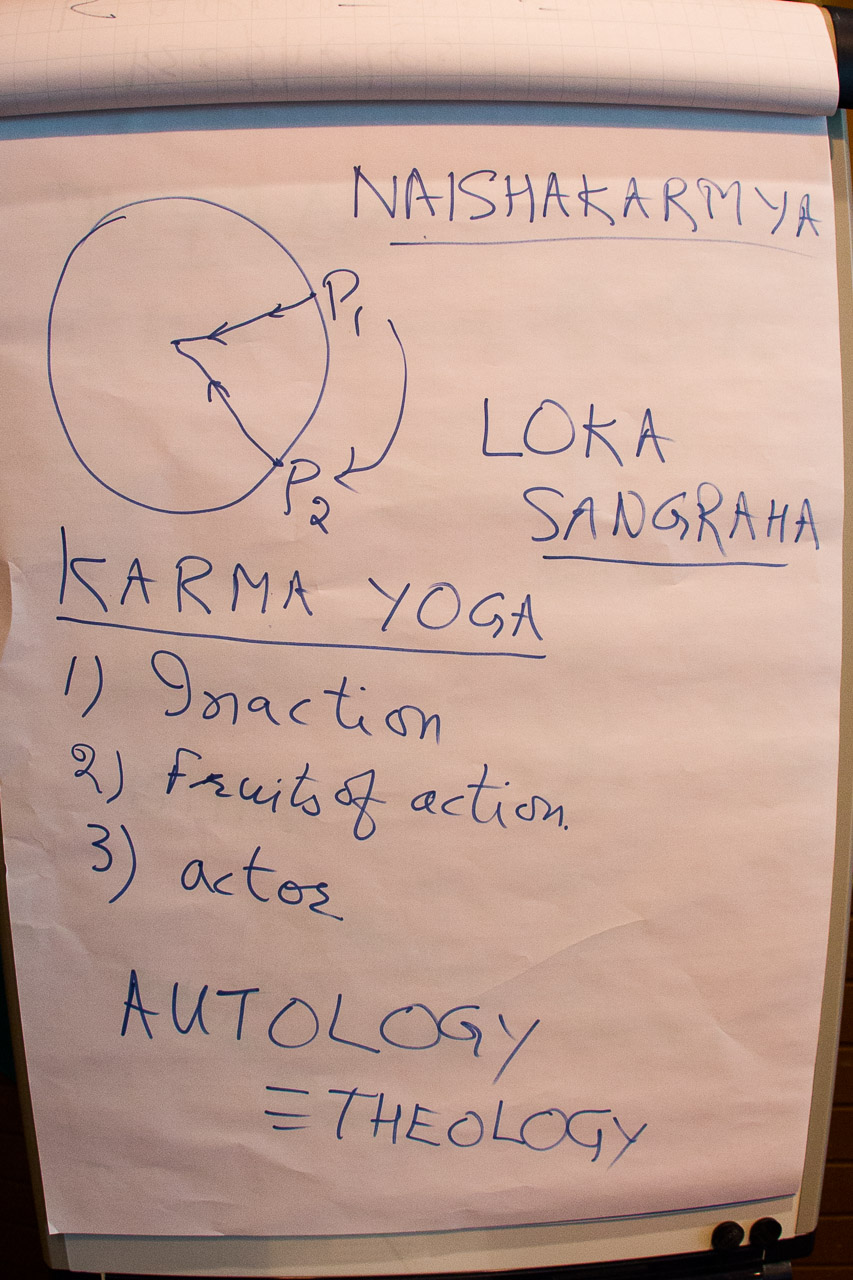 NAISHAKARMYA
P1
P2
LOKA
SANGRAHA
KARMA YOGA
1) Inaction
2) Fruits of action.
3) actor
AUTOLOGY
≡ THEOLOGY